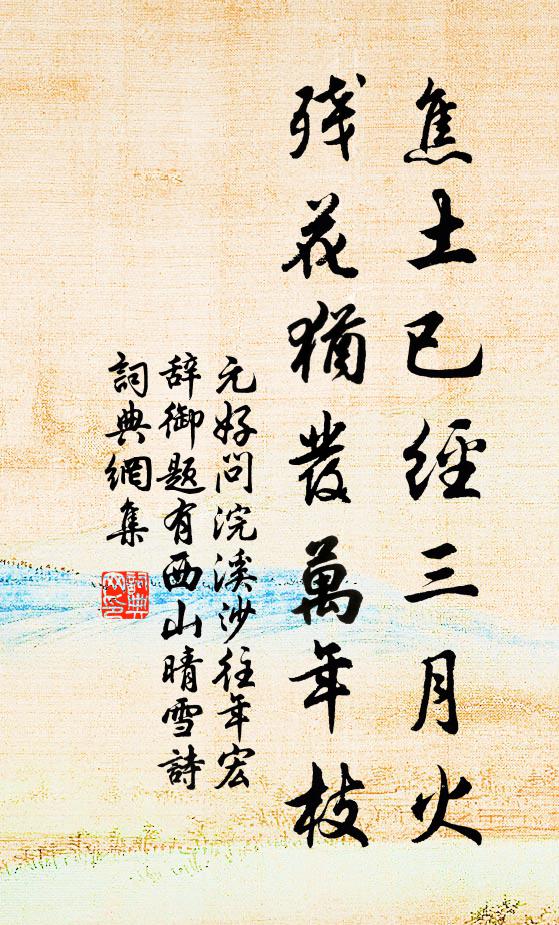 焦土已經三月火
殘花猶發萬年枝
元好问浣溪沙往年宏
辞御题有西山晴雪詩
詞典網集
詞典网印